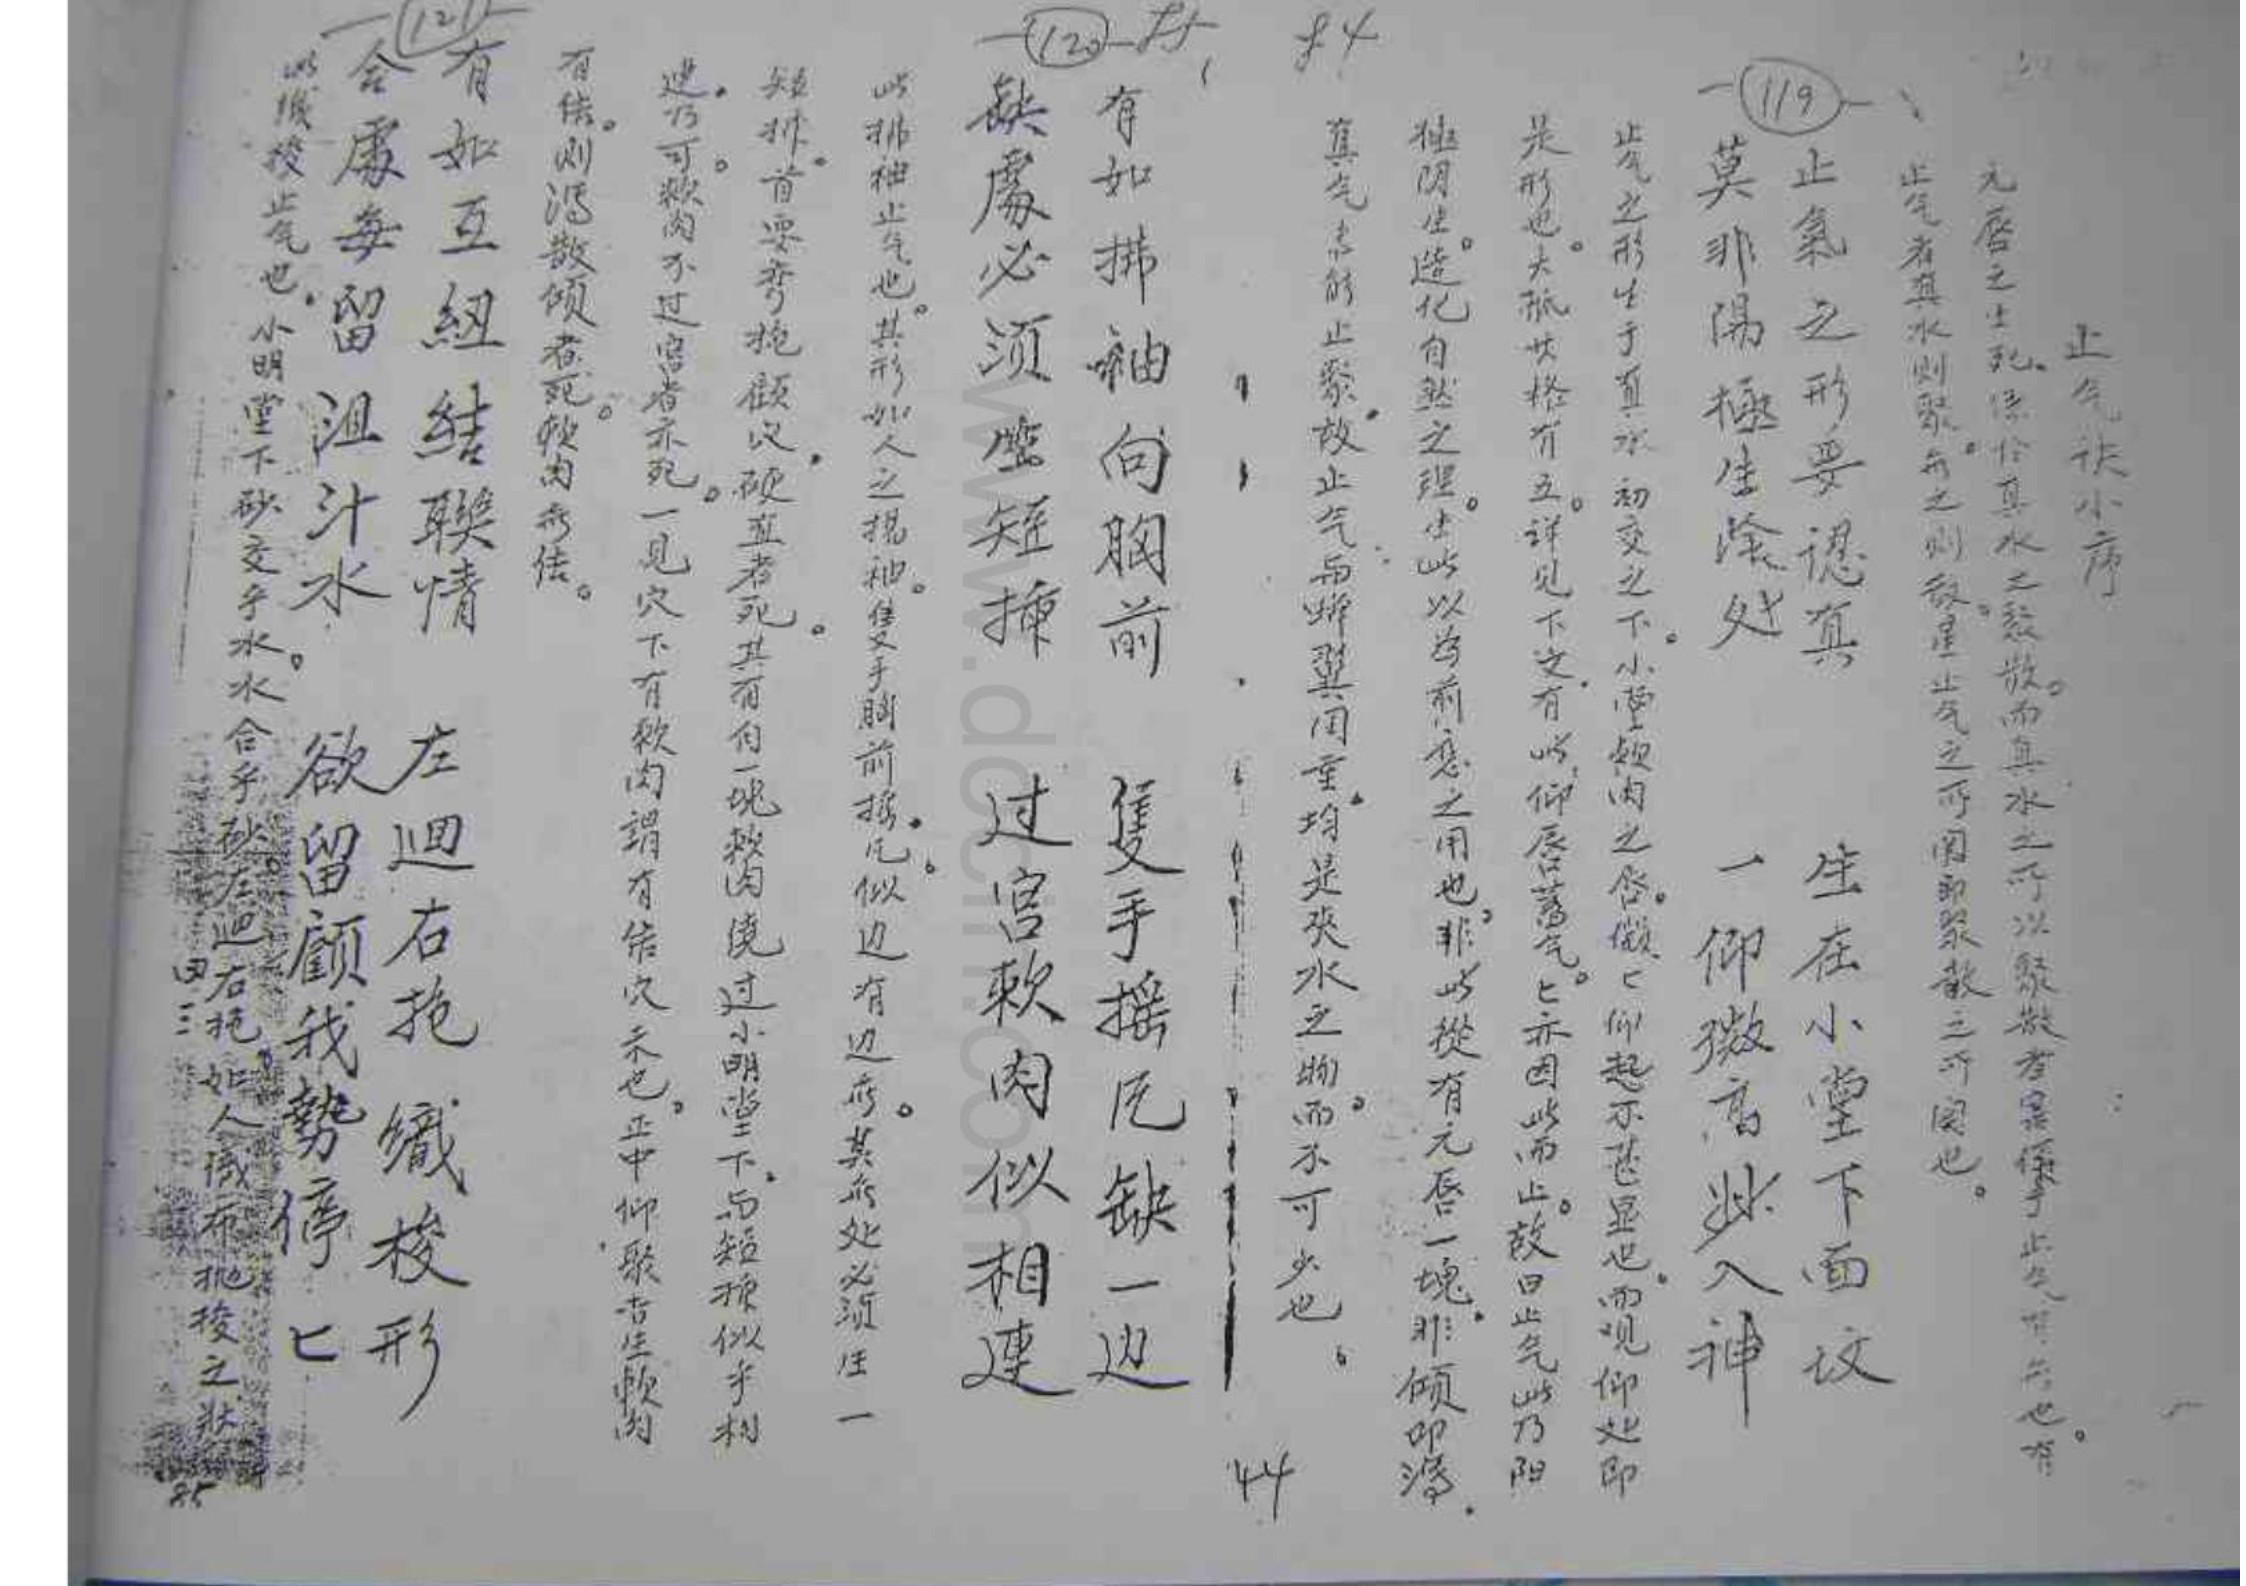 止气诀小序
元唇之生死。係於真水之聚散。而真水之所以聚散者果係乎止气有無也。有
止气者真水则聚。無之则散。是止气之所関即聚散之所関也。
-(119)-
止氣之形要認真 生在小堂下面坟
莫非陽極生陰处 一仰微高妙入神
止气之形生于真水初交之下。小堂頰肉之唇。微匕仰起不甚显也。而观仰处即
是形也。大抵其格有五。详见下文有此仰唇蓄气。匕亦因此而止。故曰止气此乃阳
極阴生。造化自然之理。生此以為前忌之用也。非此縱有元唇一塊。非傾即瀉。
真气焉能止聚。故止气与蝉翼用重。均是夾水之物。而不可少也。
84
-(120)-
有如拂袖向胸前 隻手摇氏缺一边
缺處必须應短揷 过宫軟肉似相連
此拂袖止气也。其形如人之揚袖。隻手胸前摇。氏似边有边無。其無处必须生一
短揷。首要弯抱顧穴。硬直者死。其有自一塊軟肉遶过小明堂下。与短揷似乎相
連。乃可。軟肉不过宫者亦死。一见穴下有軟肉謂有结穴未也。正中仰聚者生軟肉
有结。则瀉散傾者死。軟肉無结。
44
-(121)-
有如互紐結聯情 左迴右抱織梭形
合處每留沮汁水 欲留顧我勢停匕
此織梭止气也。小明堂下砂交乎水。水合乎砂。左迴右抱。如人織布抛梭之狀
四三
85
www.docin.com